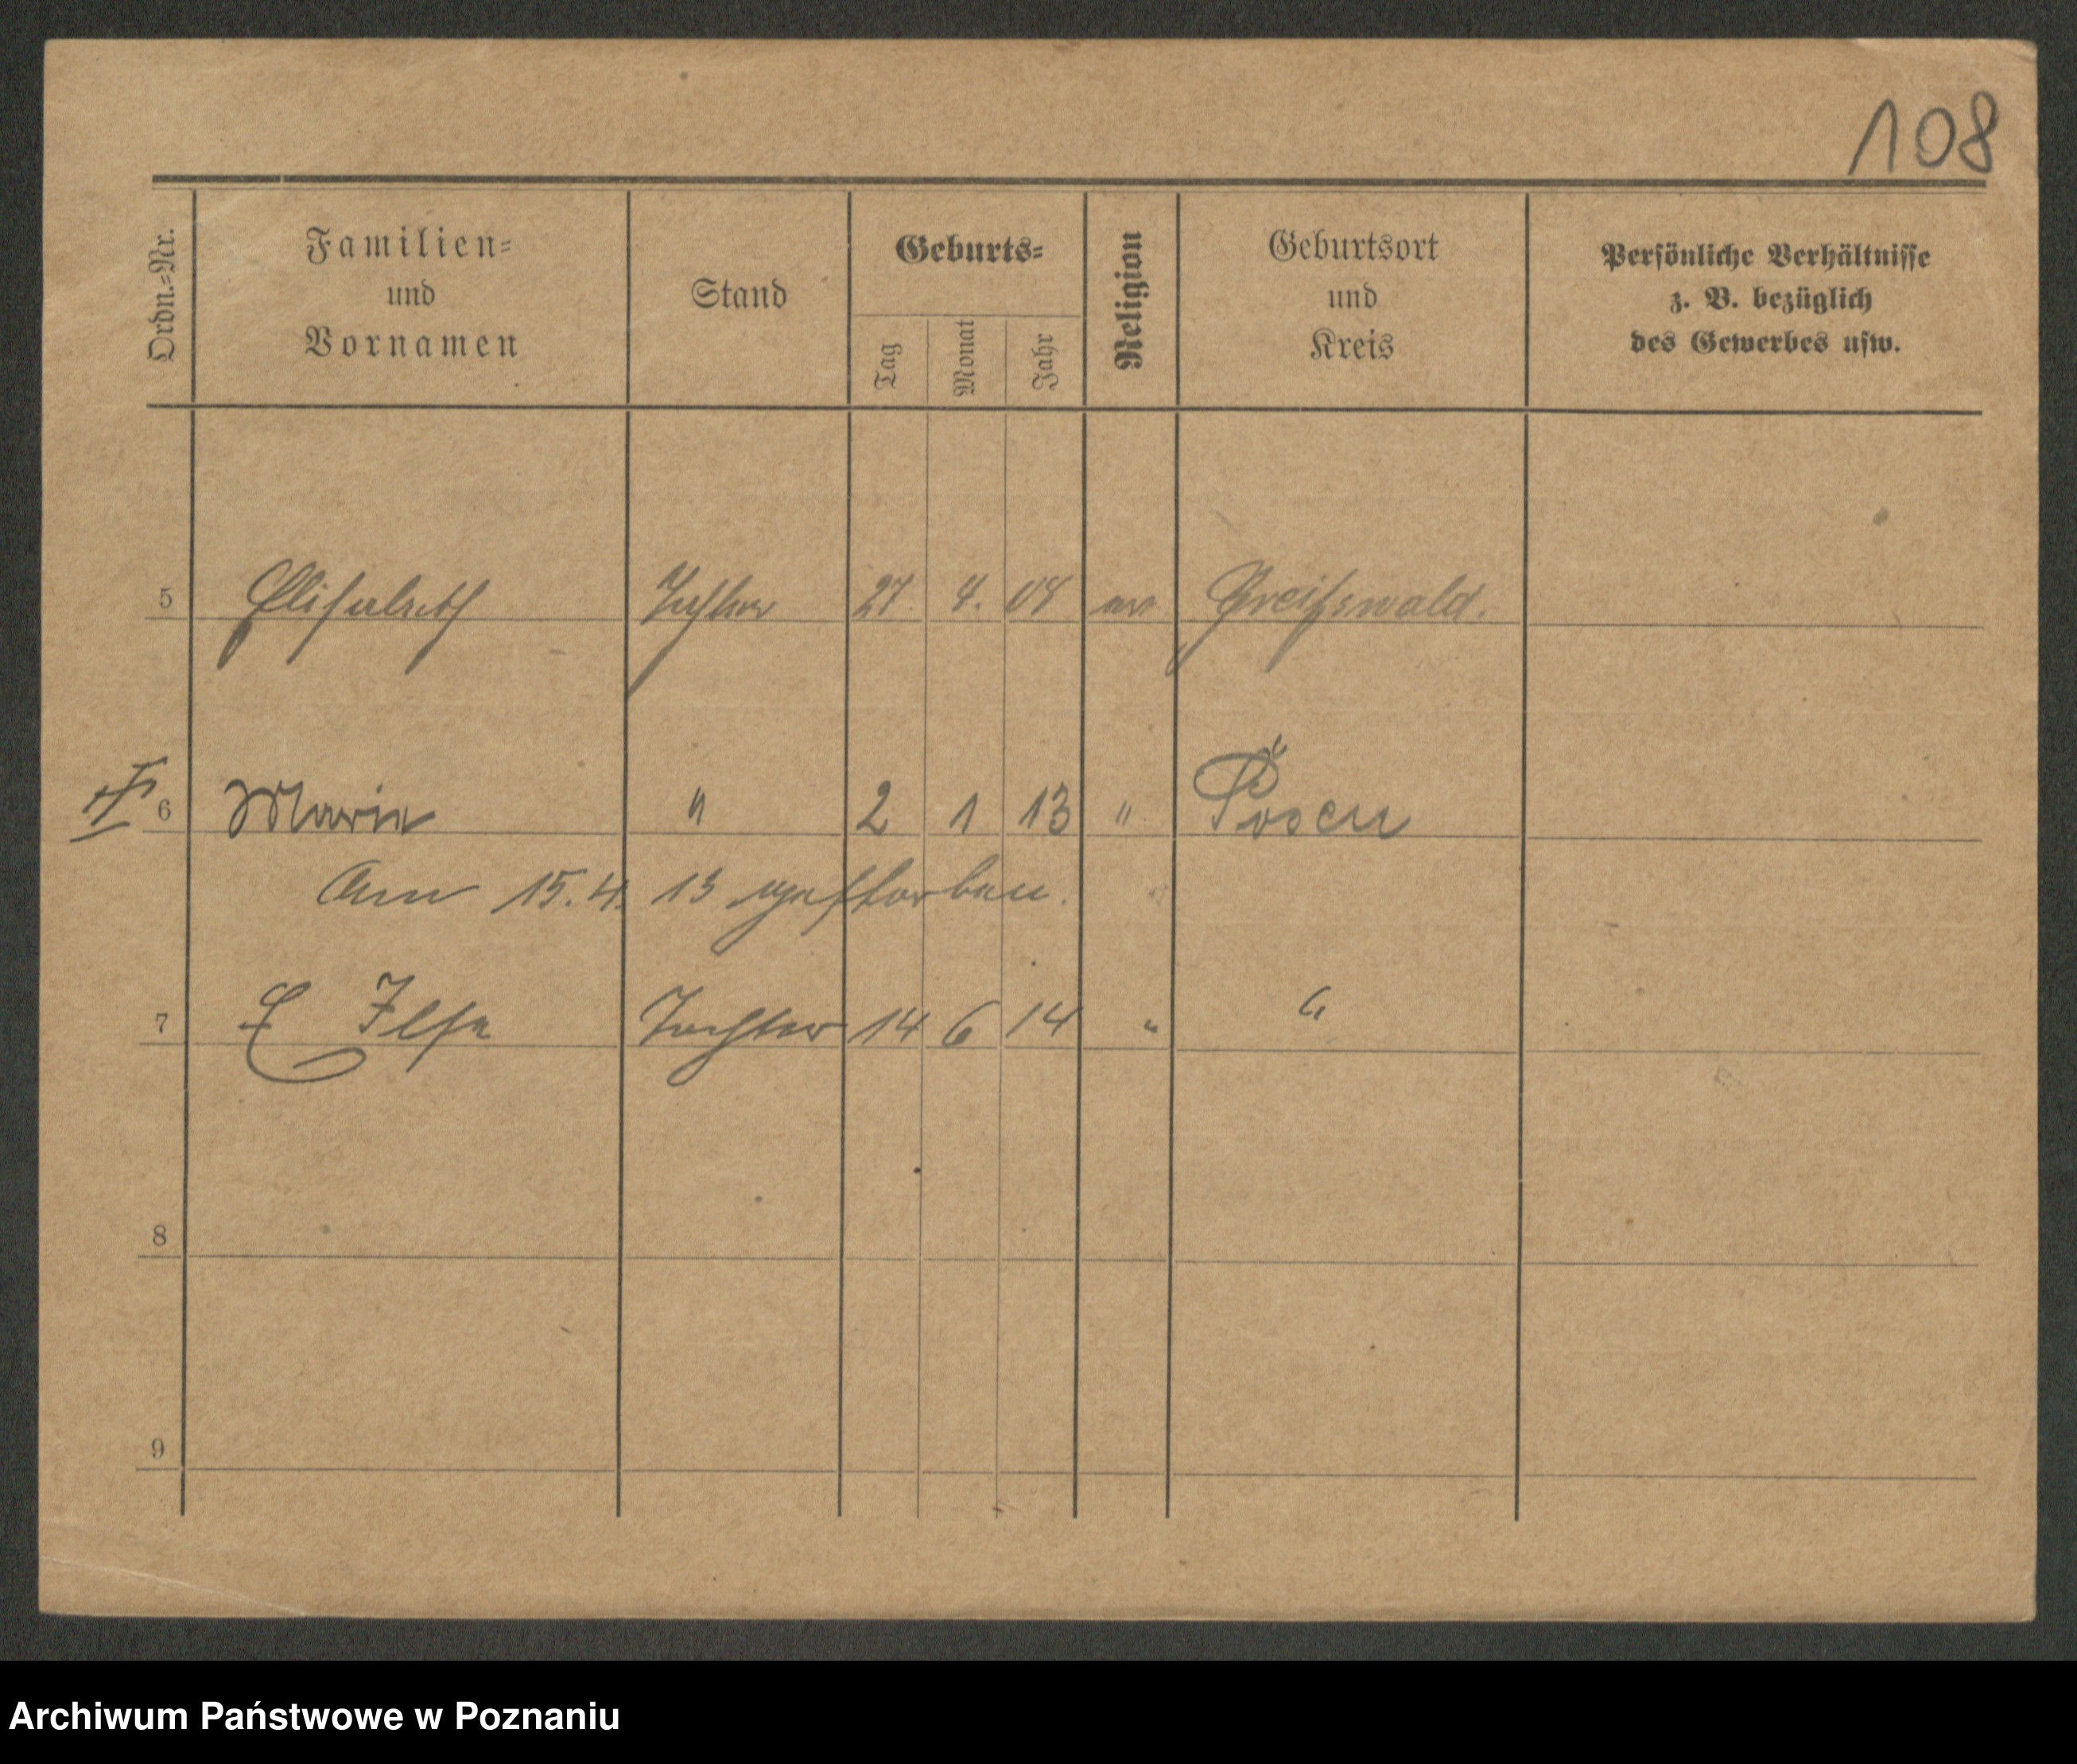 108
Ordn.-Nr.
Familien-
und
Vornamen
Stand
Geburts-
Tag
Monat
Jahr
Religion
Geburtsort
und
Kreis
Persönliche Verhältnisse
z. B. bezüglich
des Gewerbes usw.
5 Elisabeth Tochter 27. 4. 08 ev Greifswald.
6 Marie " 2 1 13 " Posen
Am 15.4. 13 gestorben.
7 Ilse Tochter 14 6 14 " "
8
9
Archiwum Państwowe w Poznaniu